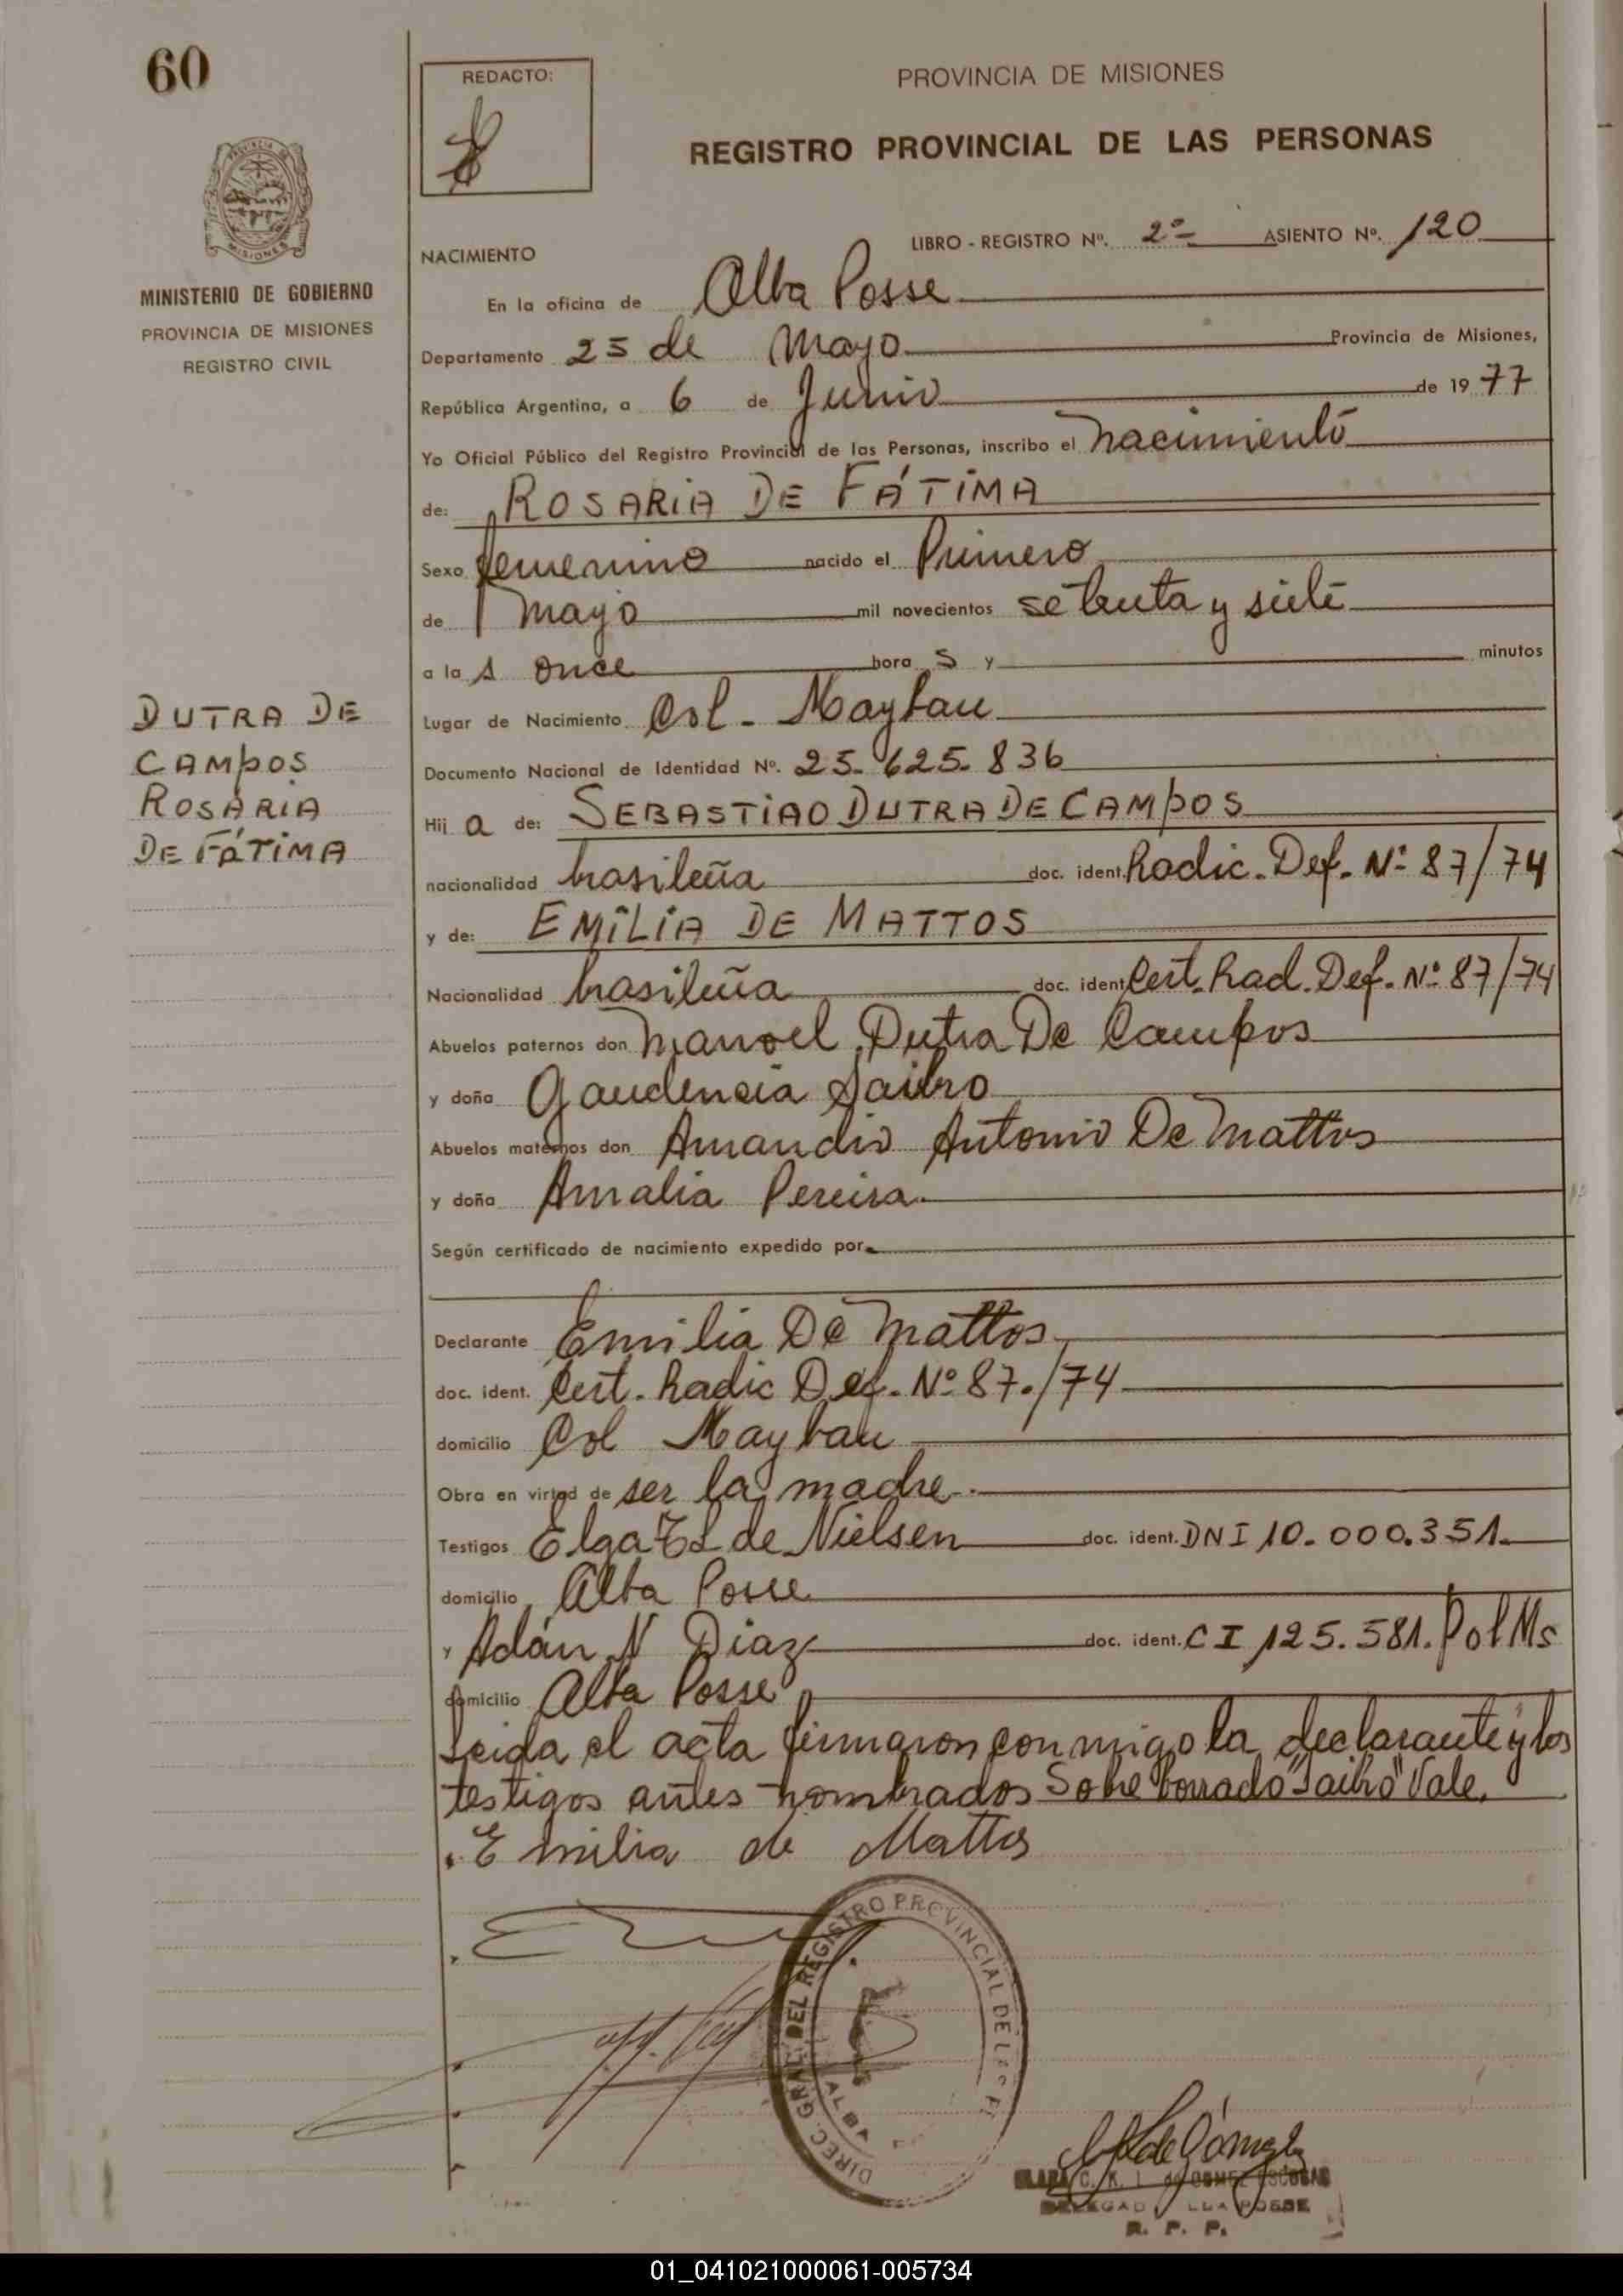 60
REDACTO:
PROVINCIA DE MISIONES
REGISTRO PROVINCIAL DE LAS PERSONAS
PROVINCIA DE
MISIONES
MINISTERIO DE GOBIERNO
PROVINCIA DE MISIONES
REGISTRO CIVIL
LIBRO - REGISTRO Nº. 2º ASIENTO Nº. 120
NACIMIENTO
En la oficina de Alba Posse
Departamento 25 de Mayo Provincia de Misiones,
República Argentina, a 6 de Junio de 1977
Yo Oficial Público del Registro Provincial de las Personas, inscribo el nacimiento
de: ROSARIA DE FÁTIMA
Sexo femenino nacido el Primero
de mayo mil novecientos setenta y siete
a las once horas y minutos
Lugar de Nacimiento Col - Maybau
Documento Nacional de Identidad Nº. 25.625.836
DUTRA DE
CAMPOS
ROSARIA
DE FÁTIMA
Hija de: SEBASTIAO DUTRA DE CAMPOS
nacionalidad brasileña doc. ident. Radic. Def. Nº 87/74
y de: EMILIA DE MATTOS
Nacionalidad brasileña doc. ident. Cert. Rad. Def. Nº 87/74
Abuelos paternos don Manoel Dutra De Campos
y doña Gaudencia
Abuelos maternos don Amandio Antonio De Mattos
y doña Amalia Pereira
Según certificado de nacimiento expedido por
Declarante Emilia De Mattos
doc. ident. Cert. Radic Def. Nº 87./74
domicilio Col Maybau
Obra en virtud de ser la madre.
Testigos Elga de Nielsen doc. ident. DNI 10.000.351.
domicilio Alba Posse
y Adán N Diaz doc. ident. CI 125.581. Pol Ms
domicilio Alba Posse
Leida el acta firmaron conmigo la declarante y los
testigos antes nombrados Sobre borrado Vale.
Emilia de Mattos
DIREC. GRAL. DEL REGISTRO PROVINCIAL DE
ALBA
de Gómez
R. P. P.
01_041021000061-005734